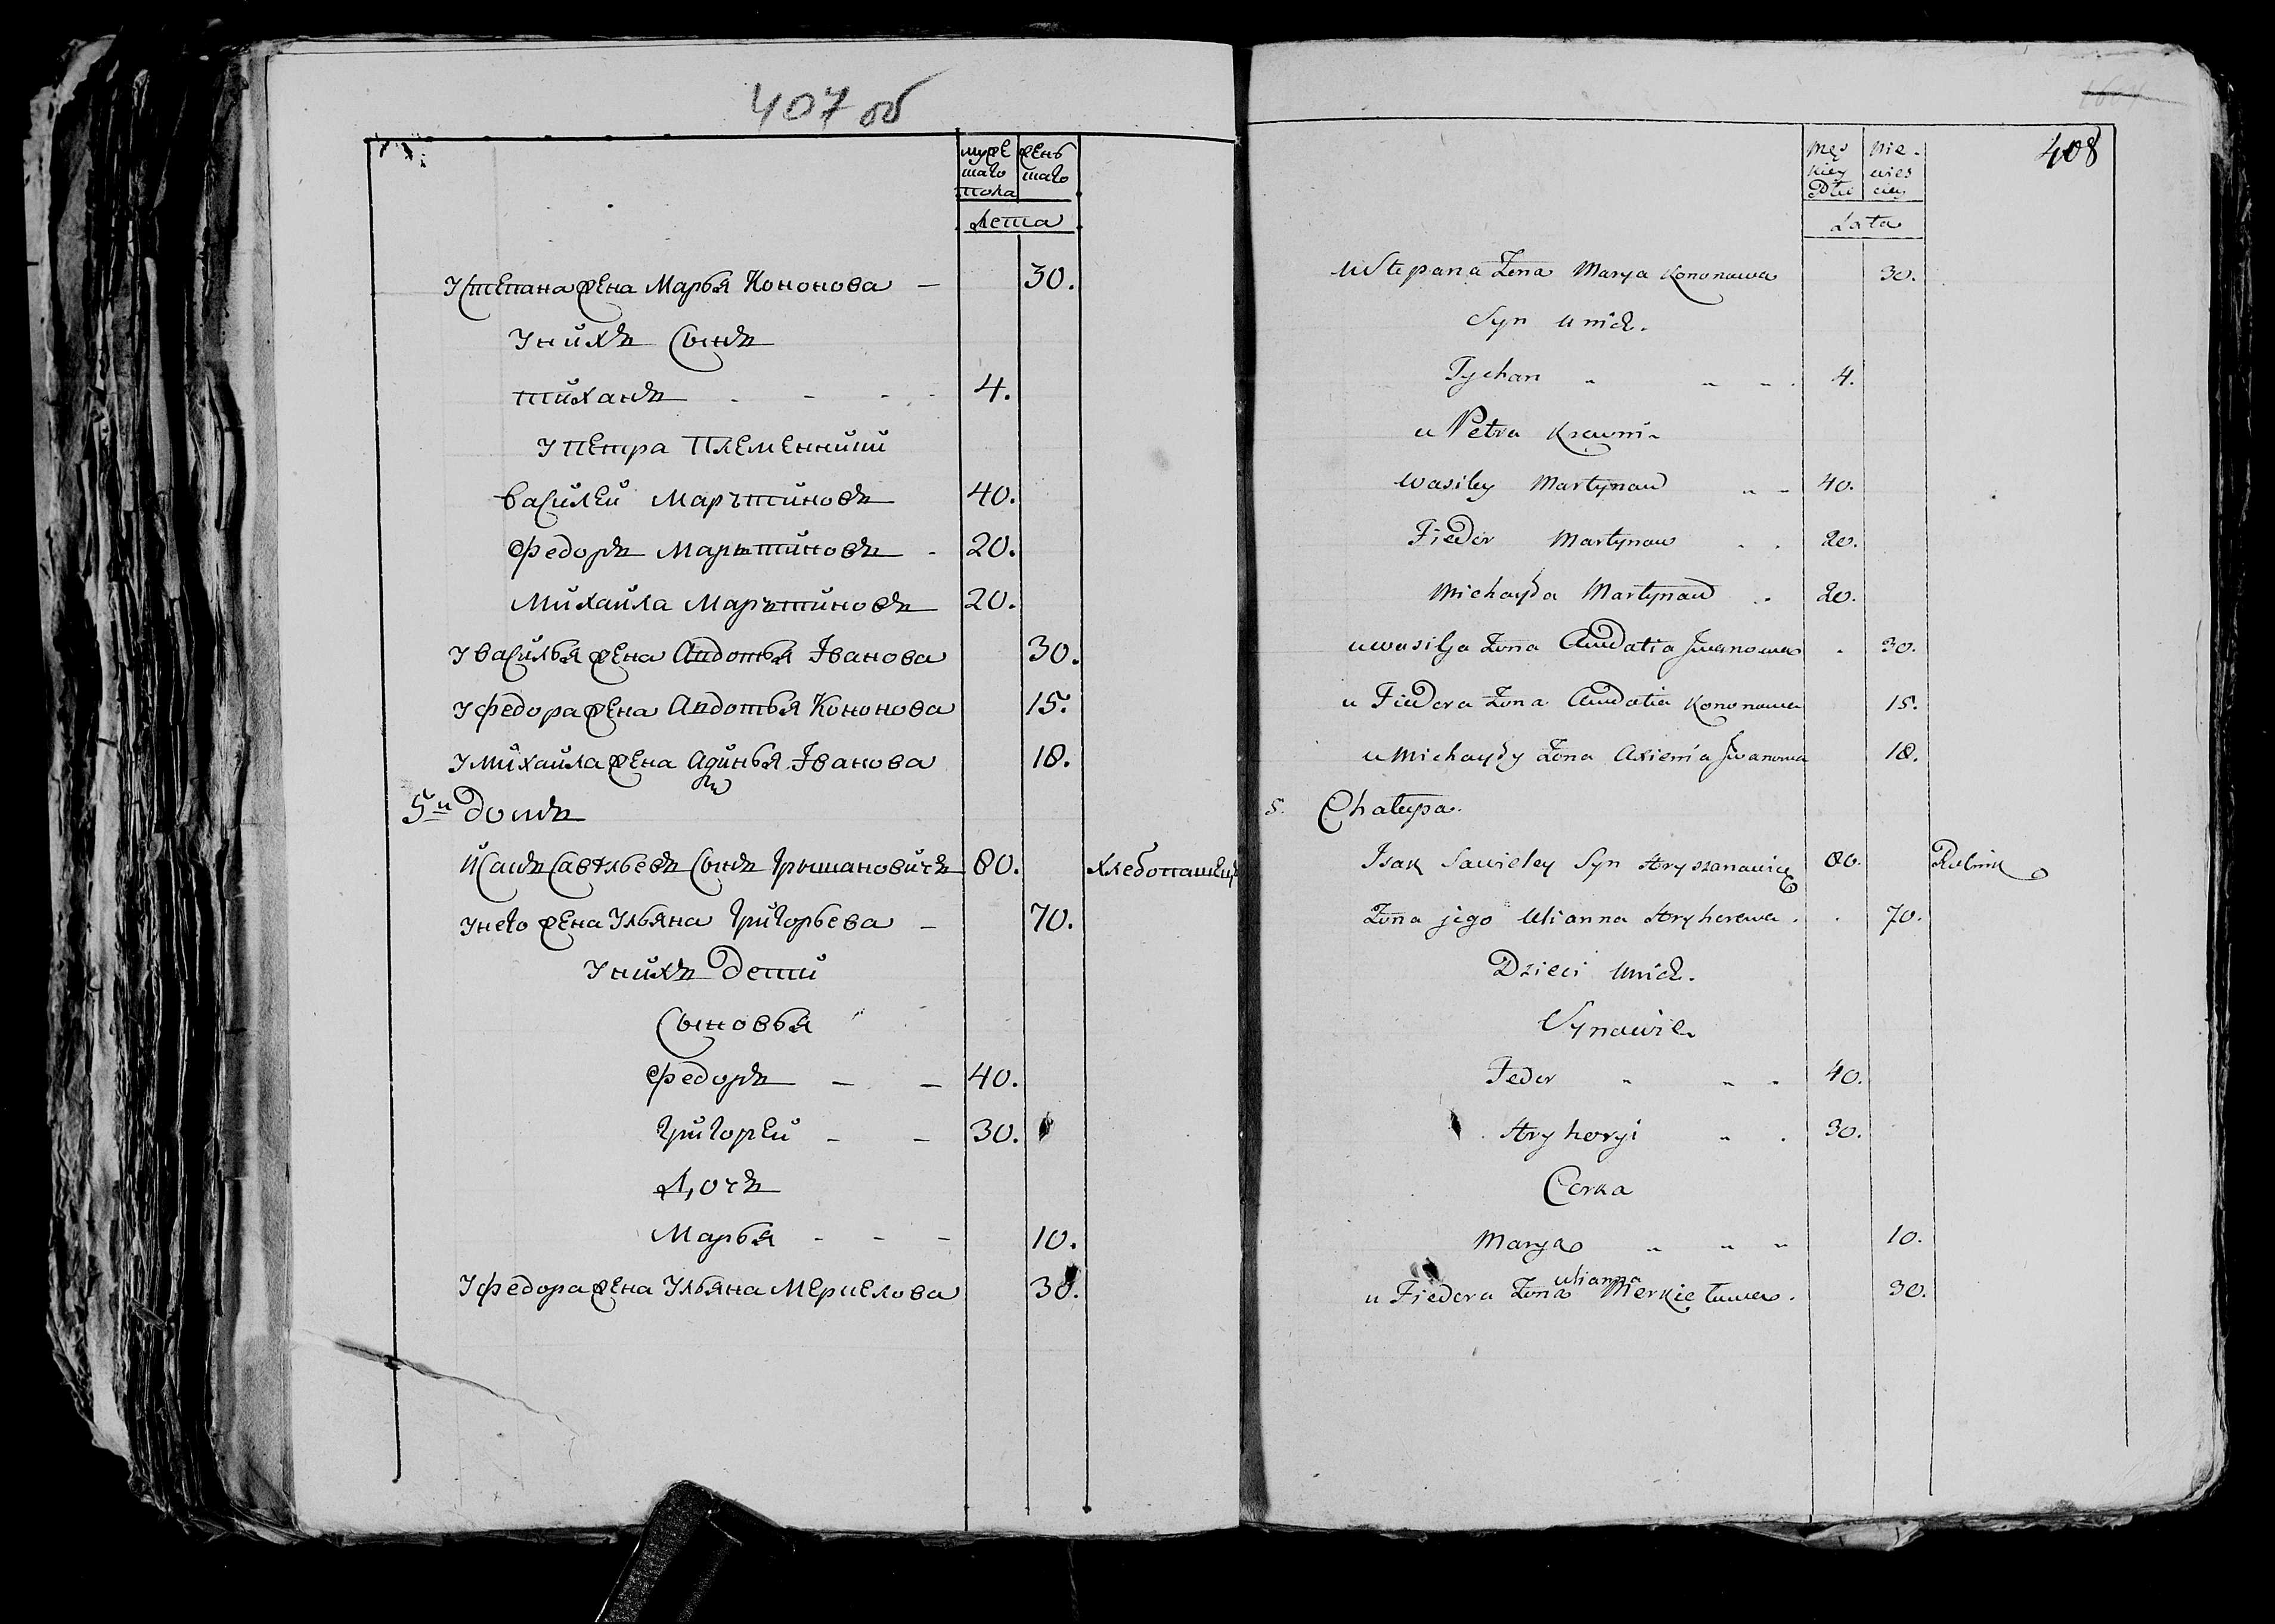 407 об
мужеска пола | женска
Лета
У Степана жена Марья Кононова – 30.
У них сынъ
Тиханъ - - - - 4.
У Петра племенники
Василей Мартиновъ 40.
Федоръ Мартиновъ - 20.
Михайла Мартиновъ 20.
У Василья жена Авдотья Іванова 30.
У Федора жена Авдотья Кононова 15.
У Михайла жена Аѯинья Іванова 18.
5й Домъ
Исакъ Савельевъ сынъ Грышановичъ 80. Хлебопашецъ
У него жена Ульяна Григорьева – 70.
У нихъ дети
Сыновья
Федоръ – – 40.
Григорей – – 30.
Дочъ
Марья - - – 10.
У Федора жена Ульяна Меркелова 30.
408
Męs kiey Płci | Nie wies ciey
Lata
u Stepana Żona Marya Kononowa 30.
Syn u nich.
Tychan 4.
u Petra Krewni
Wasiley Martynaw 40.
Fiedor Martynaw 20.
Michayła Martynaw 20.
u Wasilja Żona Audatia Jwanowa 30.
u Fiedora Żona Audatia Kononawa 15.
u Michayły Żona Axienia Jwanowa 18.
5. Chałupa.
Isak Sawieley Syn Hryszanawicz 80. Rolnik
Żona jego Ulianna Hryhorewa 70.
Dzieci u nich.
Synawie
Fedor 40.
Hryhoryi 30.
Corka
Marya 10.
u Fiedora Żona Ulianna Merkiełowa. 30.